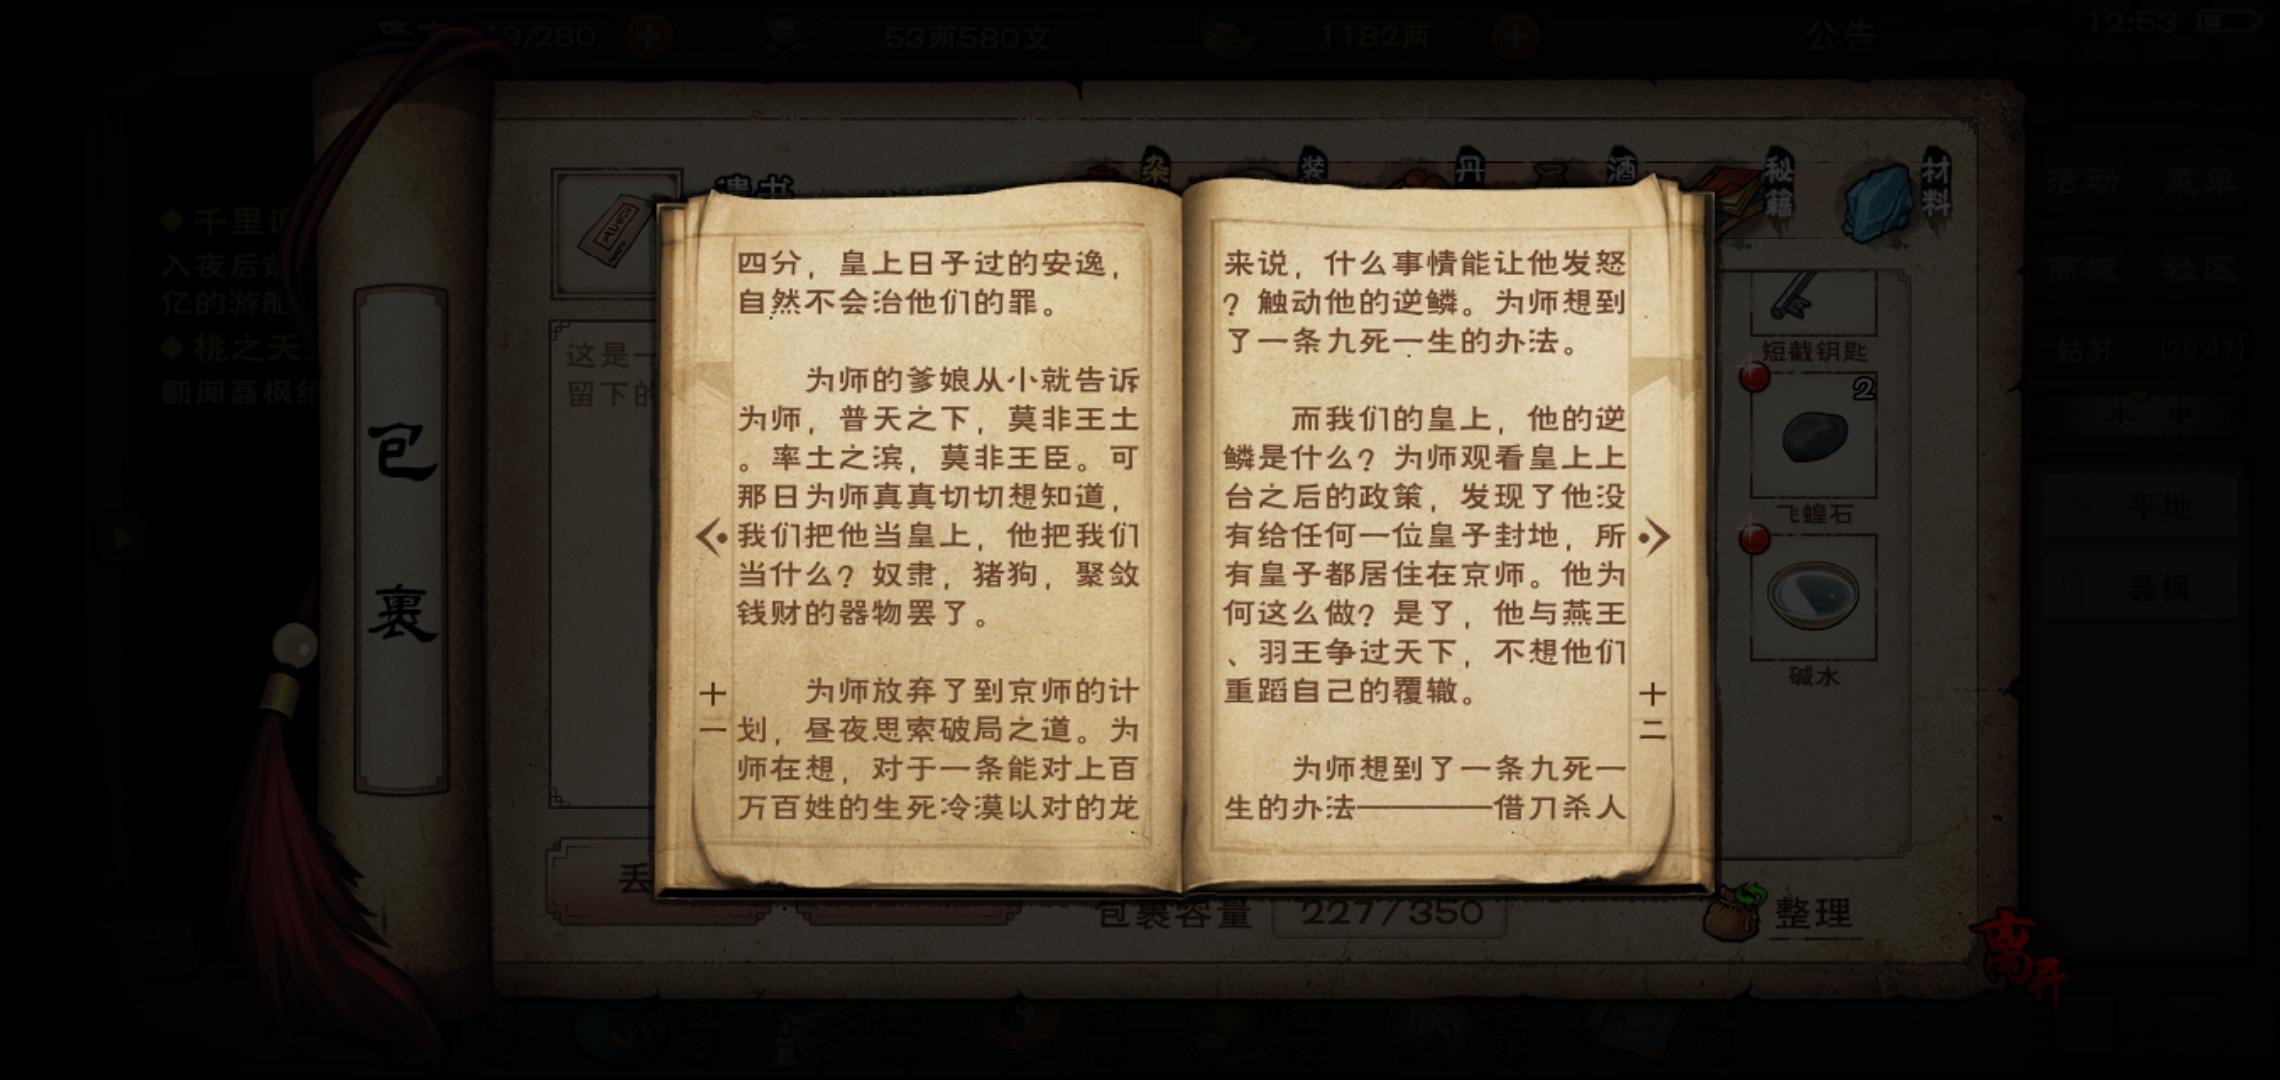 19/280
53两580文
1182两
公告
12:53
遗书
杂
装
丹
酒
秘籍
材料
活动
菜单
商城
社区
姑苏
(28,47)
平地
聂枫
千里
入夜后
亿的游船
桃之夭
翻阅聂枫给
包裹
这是一
留下的
四分，皇上日子过的安逸，
自然不会治他们的罪。
为师的爹娘从小就告诉
为师，普天之下，莫非王土
。率土之滨，莫非王臣。可
那日为师真真切切想知道，
我们把他当皇上，他把我们
当什么？奴隶，猪狗，聚敛
钱财的器物罢了。
为师放弃了到京师的计
划，昼夜思索破局之道。为
师在想，对于一条能对上百
万百姓的生死冷漠以对的龙
十一
来说，什么事情能让他发怒
？触动他的逆鳞。为师想到
了一条九死一生的办法。
而我们的皇上，他的逆
鳞是什么？为师观看皇上上
台之后的政策，发现了他没
有给任何一位皇子封地，所
有皇子都居住在京师。他为
何这么做？是了，他与燕王
、羽王争过天下，不想他们
重蹈自己的覆辙。
为师想到了一条九死一
生的办法————借刀杀人
十二
短截钥匙
2
飞蝗石
碱水
丢
包裹容量
227/350
整理
离开